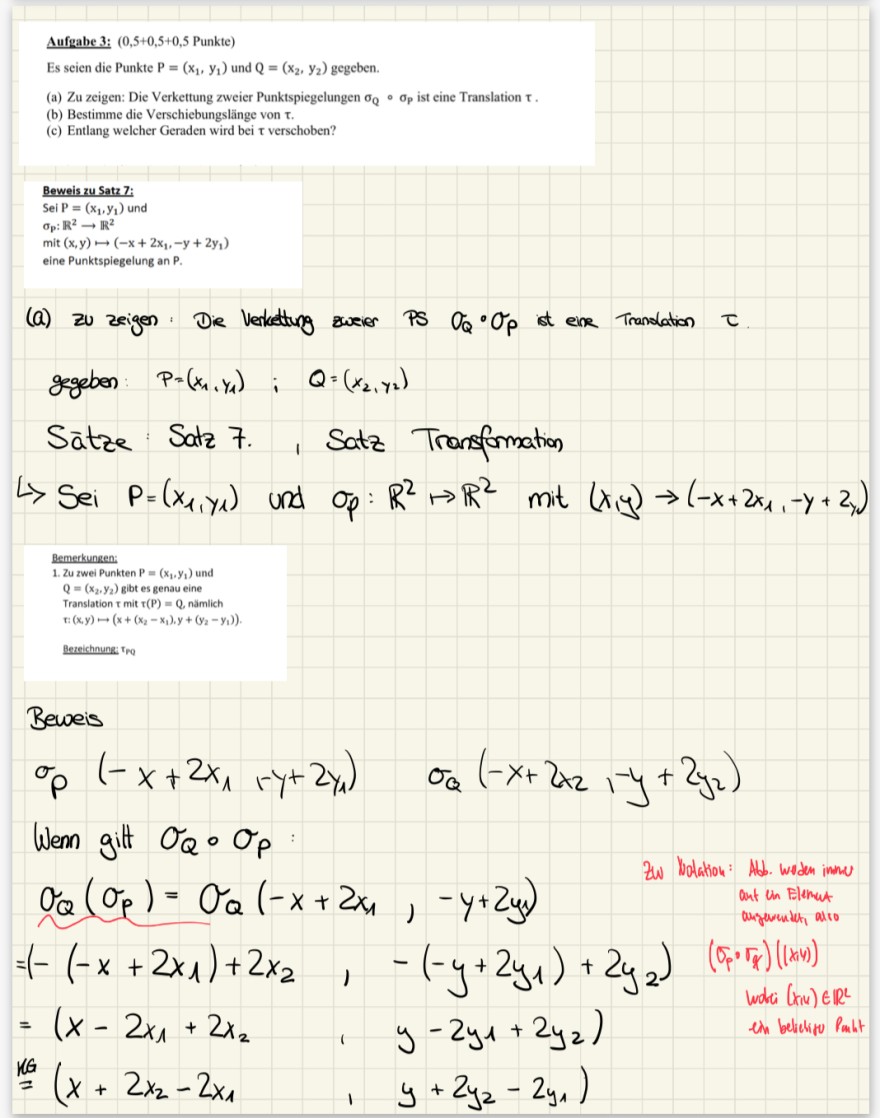 Aufgabe 3: (0,5+0,5+0,5 Punkte)
Es seien die Punkte P = (x₁, y₁) und Q = (x₂, y₂) gegeben.
(a) Zu zeigen: Die Verkettung zweier Punktspiegelungen σ_Q ∘ σ_P ist eine Translation τ .
(b) Bestimme die Verschiebungslänge von τ.
(c) Entlang welcher Geraden wird bei τ verschoben?
Beweis zu Satz 7:
Sei P = (x₁,y₁) und
σ_P: ℝ² ⟶ ℝ²
mit (x,y) ⟼ (−x + 2x₁,−y + 2y₁)
eine Punktspiegelung an P.
(a) zu zeigen : Die Verkettung zweier PS σ_Q ∘ σ_P ist eine Translation τ.
gegeben: P=(x₁,y₁) ; Q=(x₂,y₂)
Sätze : Satz 7. , Satz Transformation
↳ Sei P=(x₁,y₁) und σ_P : ℝ² ↦ ℝ² mit (x,y) → (-x+2x₁,-y+2y₁)
Bemerkungen:
1. Zu zwei Punkten P = (x₁,y₁) und
Q = (x₂,y₂) gibt es genau eine
Translation τ mit τ(P) = Q, nämlich
τ: (x,y) ⟼ (x + (x₂ − x₁),y + (y₂ − y₁)).
Bezeichnung: τ_PQ
Beweis
σ_P (-x+2x₁,-y+2y₁) σ_Q (-x+2x₂,-y+2y₂)
Wenn gilt σ_Q ∘ σ_P :
σ_Q (σ_P) = σ_Q (-x+2x₁ , -y+2y₁)
=(- (-x+2x₁)+2x₂ , -(-y+2y₁)+2y₂)
= (x - 2x₁ + 2x₂ , y - 2y₁ + 2y₂)
KG
= (x + 2x₂ - 2x₁ , y + 2y₂ - 2y₁)
Zur Notation: Abb. werden immer
auf ein Element
angewendet, also
(σ_P∘σ_Q)((x,y))
wobei (x,y)∈ℝ²
ein beliebiger Punkt